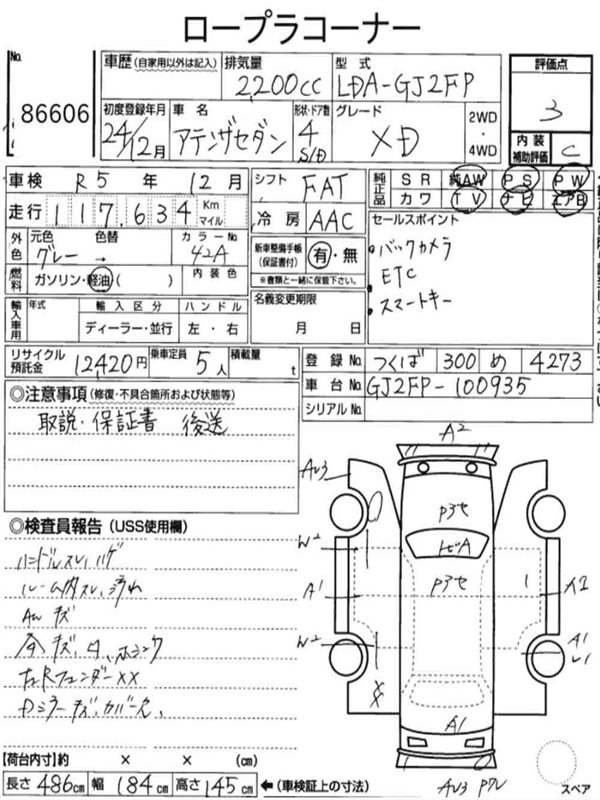 ロープラコーナー
No. 86606
車歴 (自家用以外は記入) 排気量 2,200cc 型式 LDA-GJ2FP
評価点 3
初度登録年月 24/12月 車名 アテンザセダン 形状・ドア数 4 S/D グレード XD 2WD・4WD
内装補助評価 C
車検 R5年 12月 シフト FAT 純正品 SR 純AW PS PW
カワ TV ナビ エアB
走行 117,634 Km マイル 冷房 AAC
セールスポイント
・バックカメラ
・ETC
・スマートキー
外色 元色 グレー 色替 → カラーNo. 42A
新車整備手帳 (保証書付) 有・無
※書類と一緒に保管下さい。
燃料 ガソリン・軽油 ( ) 内装色
名義変更期限 月 日
輸入車用 年式 輸入区分 ハンドル
ディーラー・並行 左・右
リサイクル預託金 12420円 乗車定員 5人 積載量 t
登録No. つくば 300 め 4273
車台No. GJ2FP-100935
シリアルNo.
◎注意事項 (修復・不具合箇所および状態等)
取説・保証書 後送
◎検査員報告 (USS使用欄)
ハンドルスレ、ハゲ
ルーム内スレ、汚れ
AWキズ
右RフェンダーXX
A2
AU3
P3セ
トビA
W2
P3セ
A1
W2
A1
A1
AU3
【荷台内寸】約 × × (cm)
長さ 486cm 幅 184cm 高さ 145cm ←(車検証上の寸法)
スペア